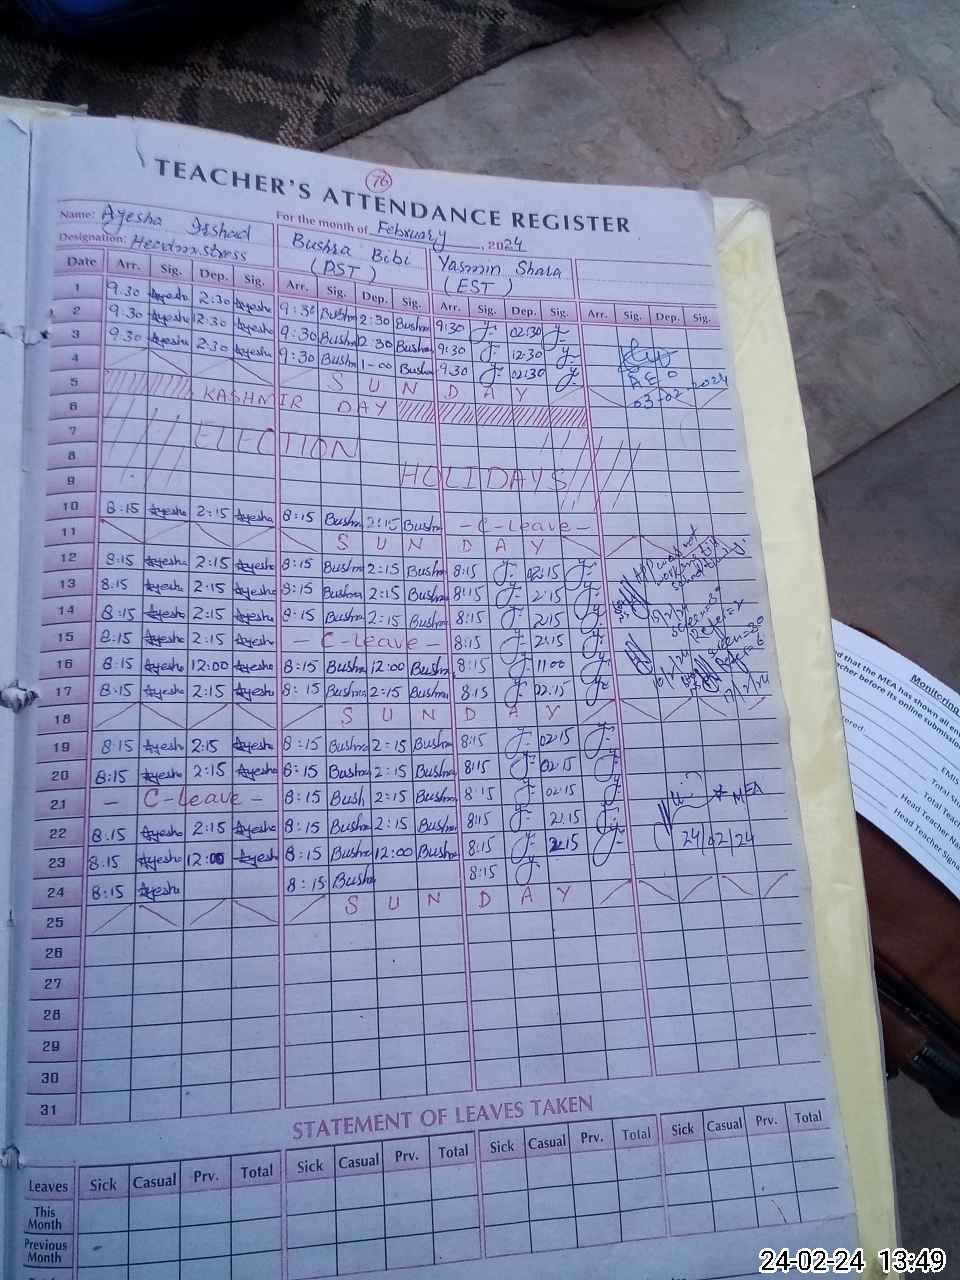 76
TEACHER'S ATTENDANCE REGISTER
Name: Ayesha Irshad For the month of February, 2024
Designation: Headmistress Bushra Bibi (PST) Yasmin (EST)
Date Arr. Sig. Dep. Sig. Arr. Sig. Dep. Sig. Arr. Sig. Dep. Sig. Arr. Sig. Dep. Sig.
1 9.30 Ayesha 2:30 Ayesha 9:30 Bushra 2:30 Bushra 9:30 02:30
2 9.30 Ayesha 12:30 Ayesha 9:30 Bushra Bushra 9:30 12:30
3 9.30 Ayesha 2:30 Ayesha 9:30 Bushra 1-00 Bushra 9.30 02:30
4 SUNDAY
AEO
03-02-2024
5 KASHMIR DAY
6
7 ELECTION
8 HOLIDAYS
9
10 8:15 Ayesha 2:15 Ayesha 8:15 Bushra 2:15 Bushra - C-Leave -
11 SUNDAY
12 8:15 Ayesha 2:15 Ayesha 8:15 Bushra 2:15 Bushra 8:15 02:15
13 8:15 Ayesha 2:15 Ayesha 8:15 Bushra 2:15 Bushra 8:15 2:15
14 8:15 Ayesha 2:15 Ayesha 8:15 Bushra 2:15 Bushra 8:15 2:15
15 8:15 Ayesha 2:15 Ayesha - C-Leave - 8:15 2:15
16 8:15 Ayesha 12:00 Ayesha 8:15 Bushra 12:00 Bushra 8:15 11:00
17 8:15 Ayesha 2:15 Ayesha 8:15 Bushra 2:15 Bushra 8:15 02:15
17/2/24
18 SUNDAY
19 8:15 Ayesha 2:15 Ayesha 8:15 Bushra 2:15 Bushra 8:15 02:15
20 8:15 Ayesha 2:15 Ayesha 8:15 Bushra 2:15 Bushra 8:15 02:15
21 - C-Leave - 8:15 Bush 2:15 Bushra 8:15 02:15
MEA
22 8:15 Ayesha 2:15 Ayesha 8:15 Bushra 2:15 Bushra 8:15 2:15
24/02/24
23 8:15 Ayesha 12:00 Ayesha 8:15 Bushra 12:00 Bushra 8:15 2:15
24 8:15 Ayesha 8:15 Bushra 8:15
25 SUNDAY
26
27
28
29
30
31
STATEMENT OF LEAVES TAKEN
Leaves Sick Casual Prv. Total Sick Casual Prv. Total Sick Casual Prv. Total Sick Casual Prv. Total
This Month
Previous Month
Monitoring
that the MEA has shown all
before its online submission
EMIS
Head Teacher
Head Teacher
24-02-24 13:49